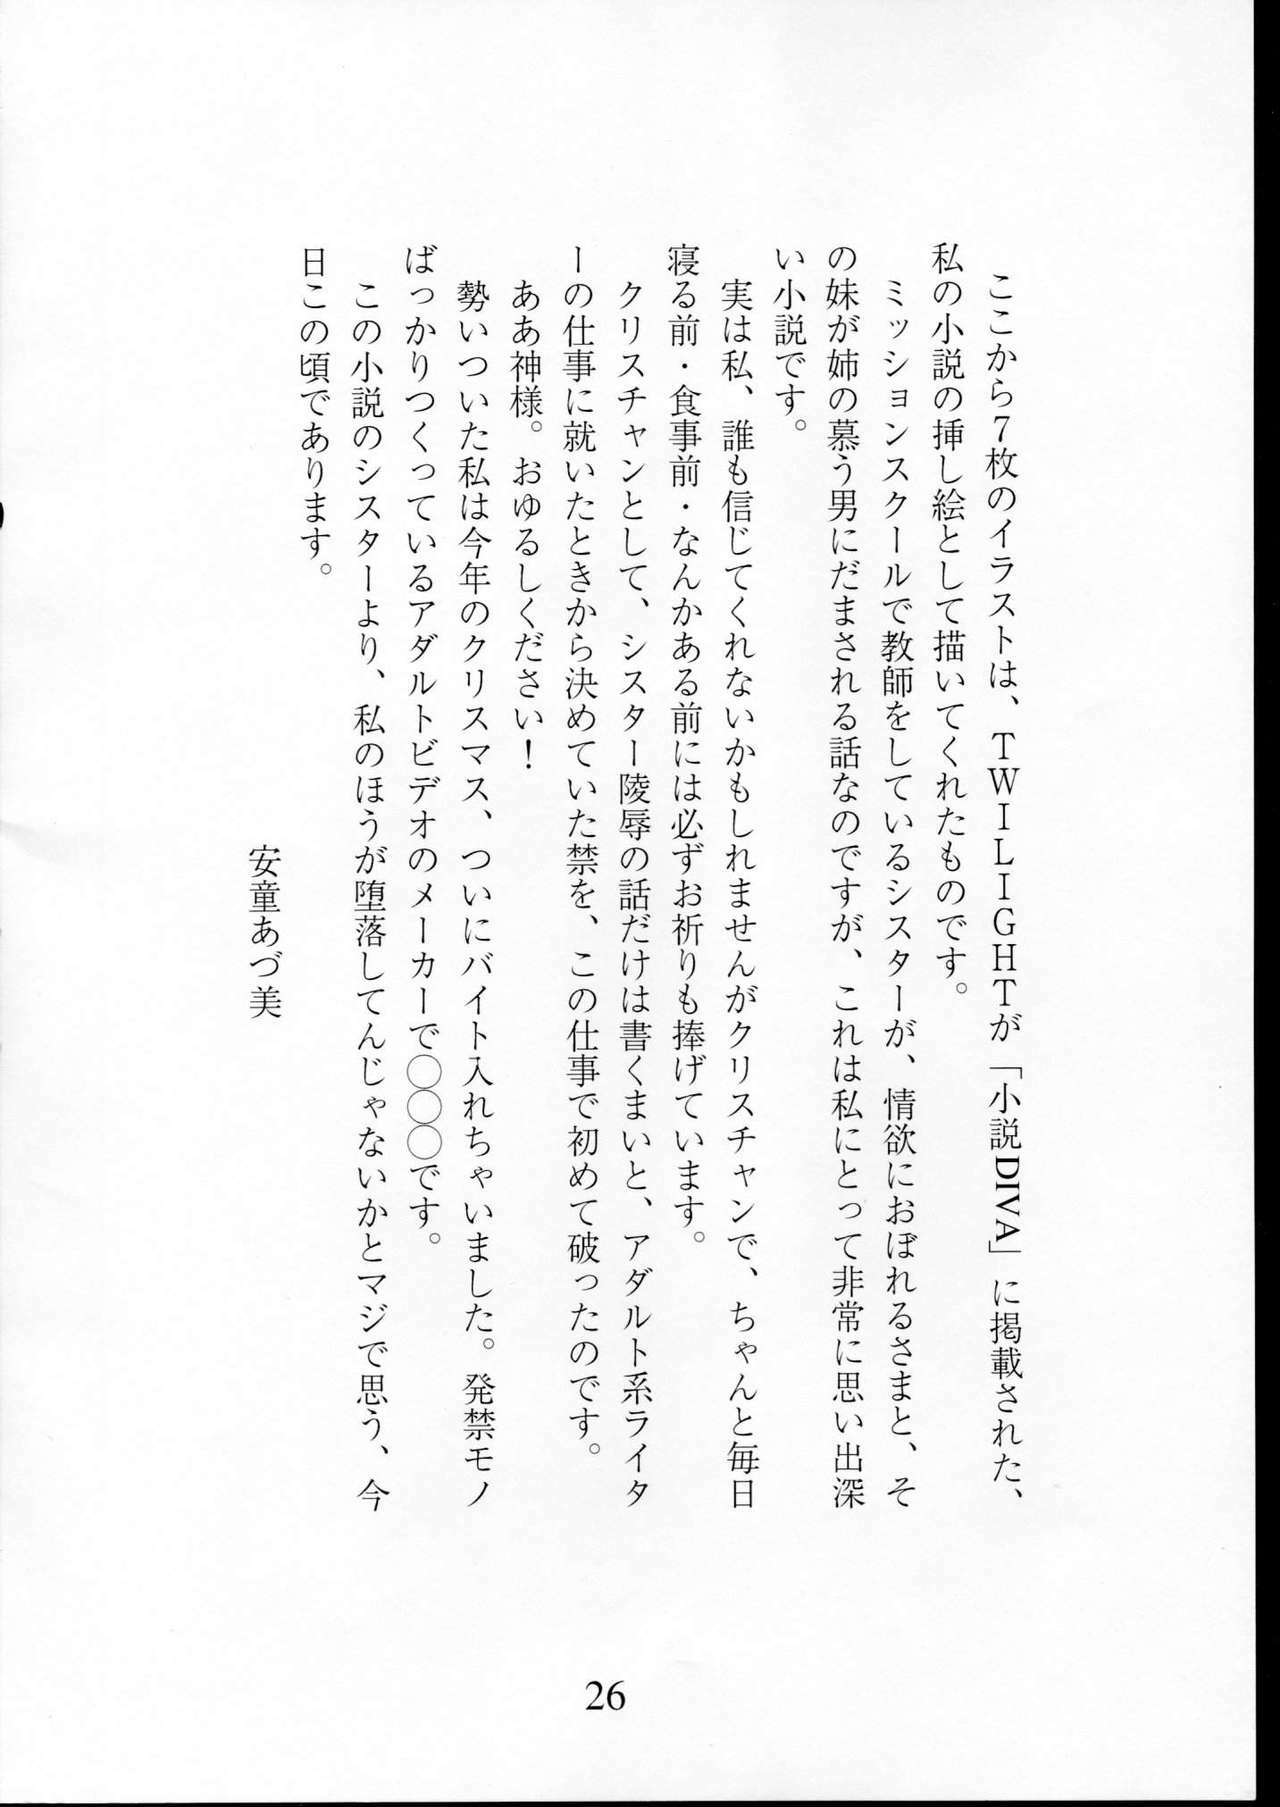 ここから７枚のイラストは、ＴＷＩＬＩＧＨＴが「小説DIVA」に掲載された、
私の小説の挿し絵として描いてくれたものです。
ミッションスクールで教師をしているシスターが、情欲におぼれるさまと、そ
の妹が姉の慕う男にだまされる話なのですが、これは私にとって非常に思い出深
い小説です。
実は私、誰も信じてくれないかもしれませんがクリスチャンで、ちゃんと毎日
寝る前・食事前・なんかある前には必ずお祈りも捧げています。
クリスチャンとして、シスター陵辱の話だけは書くまいと、アダルト系ライタ
ーの仕事に就いたときから決めていた禁を、この仕事で初めて破ったのです。
ああ神様。おゆるしください！
勢いついた私は今年のクリスマス、ついにバイト入れちゃいました。発禁モノ
ばっかりつくっているアダルトビデオのメーカーで◯◯◯です。
この小説のシスターより、私のほうが堕落してんじゃないかとマジで思う、今
日この頃であります。
安童あづ美
26